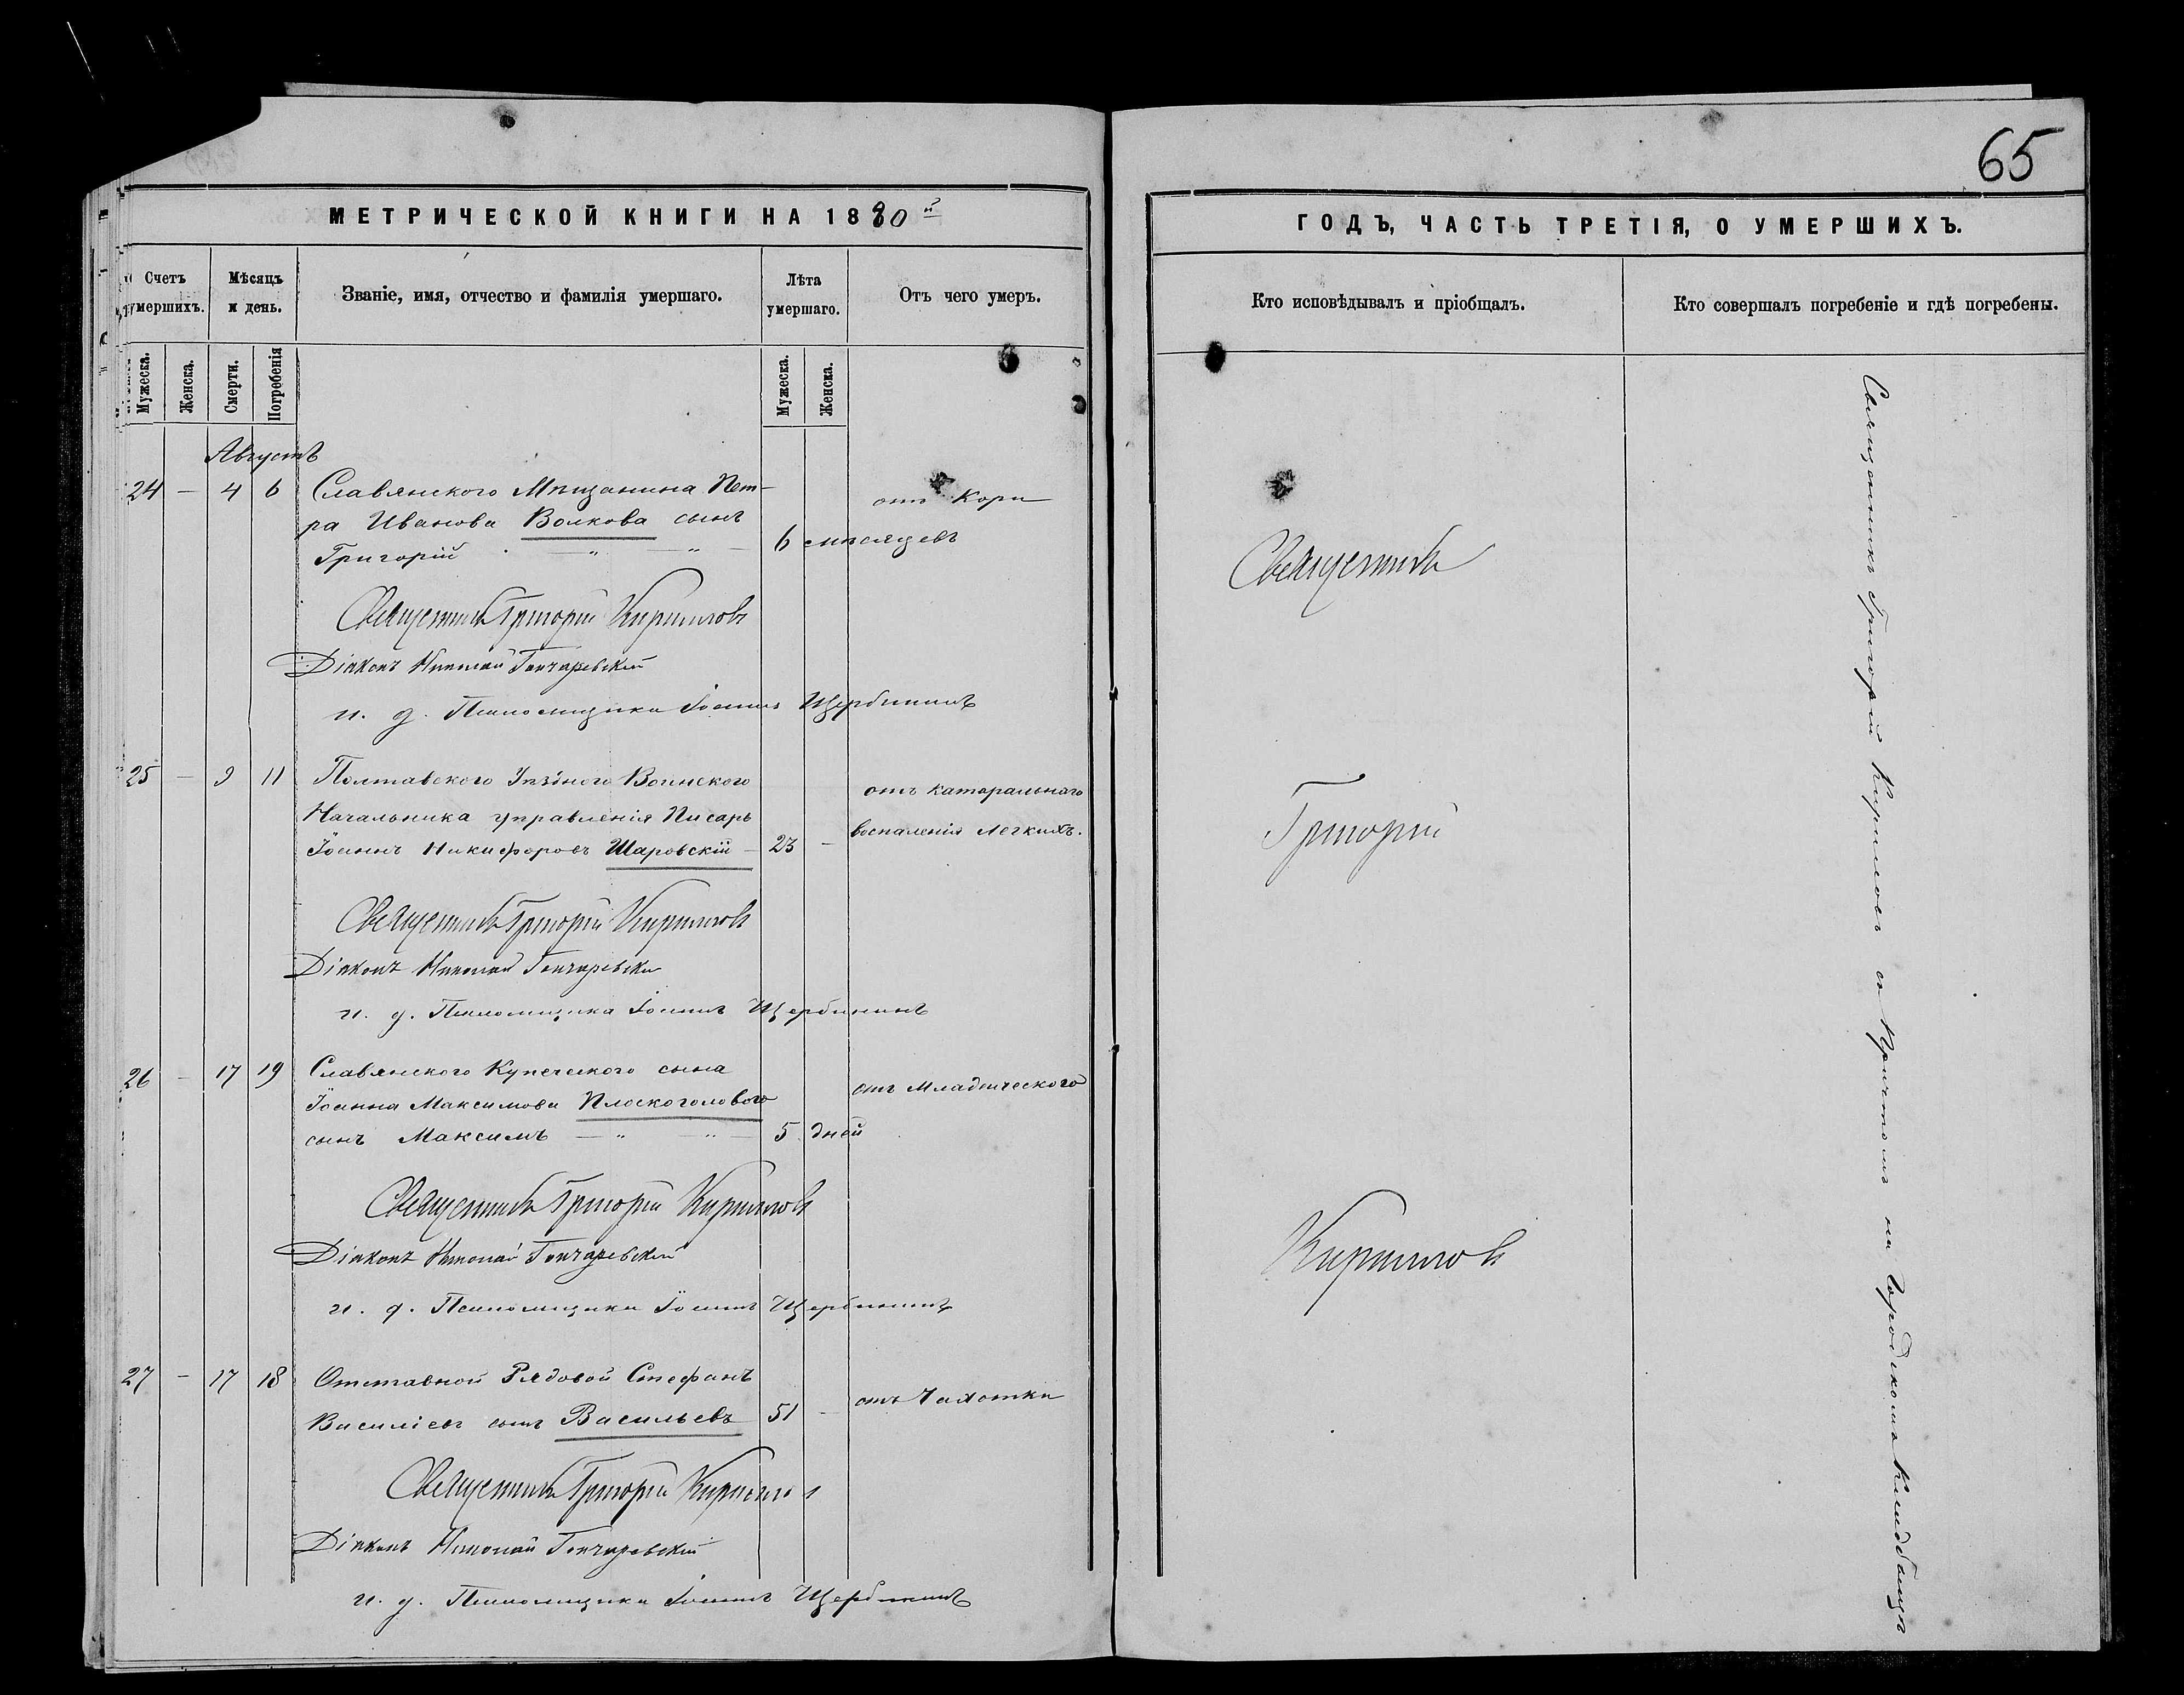 65
МЕТРИЧЕСКОЙ КНИГИ НА 1880й
ГОДЪ, ЧАСТЬ ТРЕТІЯ, О УМЕРШИХЪ.
Счетъ умершихъ.
Мѣсяцъ и день.
Званіе, имя, отчество и фамилія умершаго.
Лѣта умершаго.
Отъ чего умеръ.
Кто исповѣдывалъ и пріобщалъ.
Кто совершалъ погребеніе и гдѣ погребены.
Мужеска.
Женска.
Смерти.
Погребенія
Мужеска.
Женска.
Августъ
24 – 4 6 Славянского Мѣщанина Пет- отъ Кори
ра Иванова Волкова сынъ
Григорій – „ – „ – 6 мѣсяцевъ
Священникъ Григорій Кириловъ
Діаконъ Николай Гончаревскій
и. д. Псаломщика Іоаннъ Щербининъ
25 – 9 11 Полтавского Уѣзднаго Воинского отъ катаральнаго
Начальника управленія Писарь воспаленія Легкихъ.
Іоаннъ Никифоровъ Шаровскій – 23 –
Священникъ Григорій Кириловъ
Діаконъ Николай Гончаревскій
и. д. Псаломщика Іоаннъ Щербининъ
26 – 17 19 Славянского Купеческого сына
Іоанна Максимова Плоскоголового отъ Младенческого
сынъ Максимъ – „ – „ – 5 дней
Священникъ Григорій Кириловъ
Діаконъ Николай Гончаревскій
и. д. Псаломщика Іоаннъ Щербининъ
27 – 17 18 Отставной Рядовой Стефанъ
Василіевъ сынъ Васильевъ 51 – отъ Чахотки
Священникъ Григорій Кириловъ
Діаконъ Николай Гончаревскій
и. д. Псаломщика Іоаннъ Щербининъ
Священникъ
Григорій
Кириловъ
Священникъ Григорій Кириловъ съ Причтомъ на Городскомъ Кладбищѣ